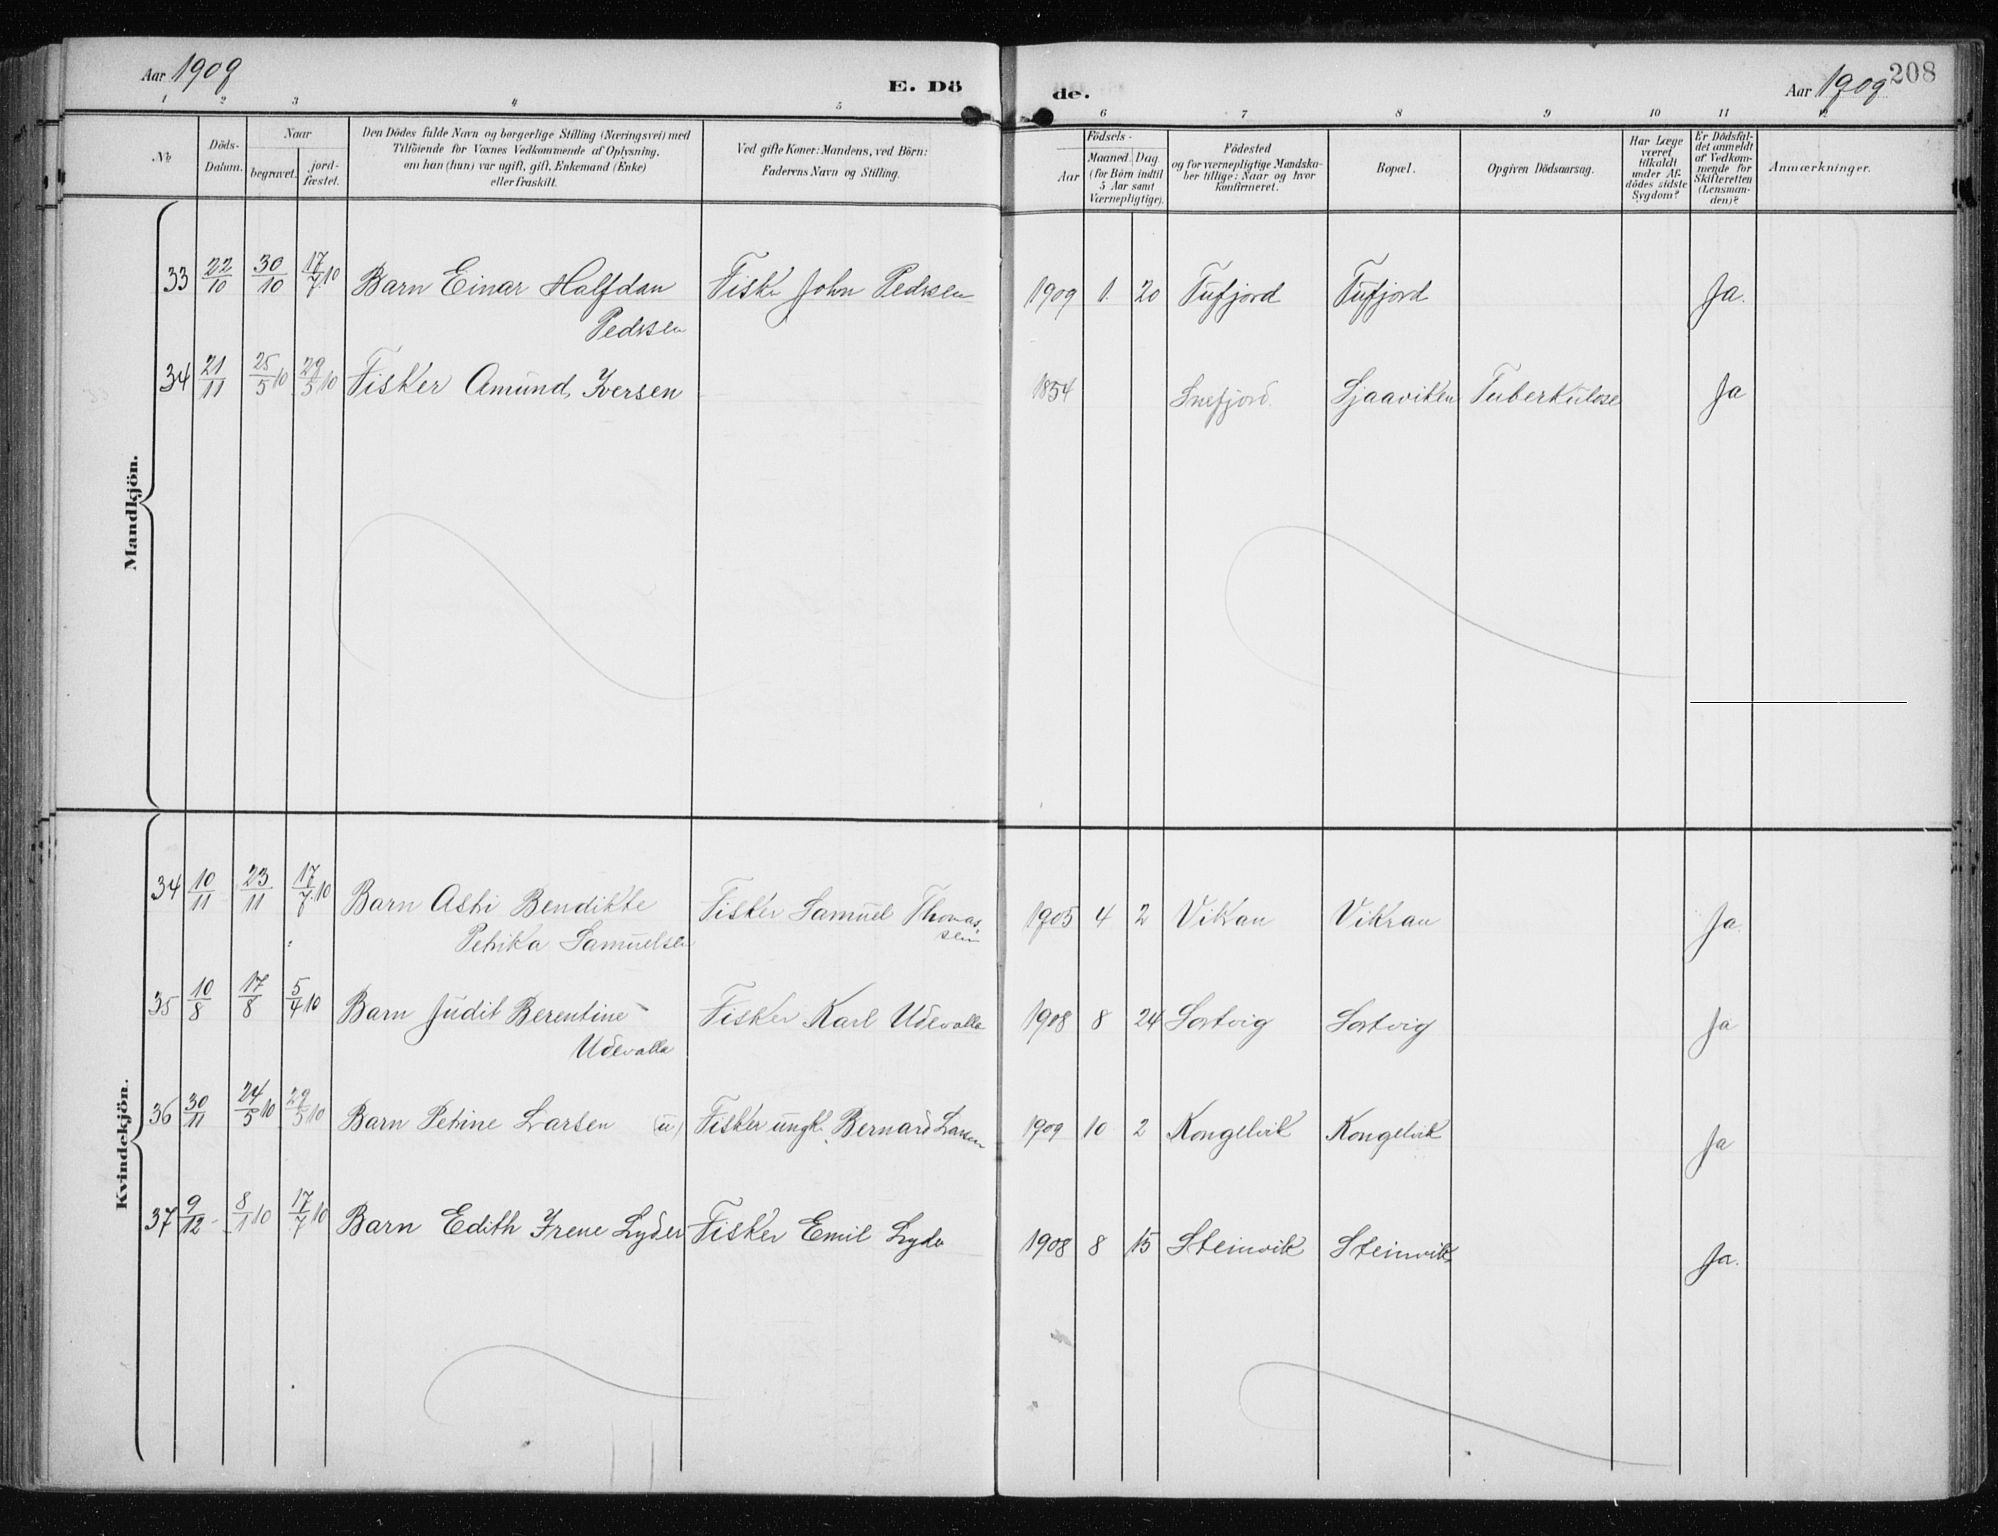 Aar 1909
E. Dö
de.
Aar 1909
208
1 2 3 4 5 6 7 8 9 10 11 12
No
Döds-
Datum.
Naar
begravet.
jord-
fæstet.
Den Dödes fulde Navn og borgerlige Stilling (Næringsvei) med
Tilföiende for Voxnes Vedkommende af Oplysning,
om han (hun) var ugift, gift, Enkemand (Enke)
eller fraskilt.
Ved gifte Koner: Mandens, ved Börn:
Faderens Navn og Stilling.
Födsels-
Aar
Maaned. Dag.
(for Börn indtil
5 Aar samt
Værnepligtige).
Födested
og for værnepligtige Mandska-
ber tillige: Naar og hvor
konfirmeret.
Bopæl.
Opgiven Dödsaarsag.
Har Læge
været
tilkaldt
under Af-
dödes sidste
Sygdom?
Er Dödsfal-
det anmeldt
af Vedkom-
mende for
Skifteretten
(Lensman-
den)?
Anmærkninger.
Mandkjön.
33 22/10 30/10 17/7 10 Barn Einar Halfdan Fisker John Pedersen 1909 1. 20 Tufjord Tufjord Ja.
Pedersen
34 21/11 25/5 10 29/5 10 Fisker Amund Iversen 1854 Snefjord. Sjaaviken Tuberkulose Ja
Kvindekjön.
34 10/11 23/11 17/7 10 Barn Asti Bendikte Fisker Samuel Thomas- 1905 4 2 Vikran Vikran Ja.
Petrika Samuelsen sen
35 10/8 17/8 5/4 10 Barn Judit Berentine Fisker Karl Udevalla 1908 8 24 Sortvig Sortvig Ja
Udevalla
36 30/11 24/5 10 29/5 10 Barn Petrine Larsen (u) Fisker ungk. Bernard Larsen 1909 10 2 Kongelvik Kongelvik Ja
37 9/12 8/1 10 17/7 10 Barn Edith Irene Lyder Fisker Emil Lyder 1908 8 15 Steinvik Steinvik Ja.